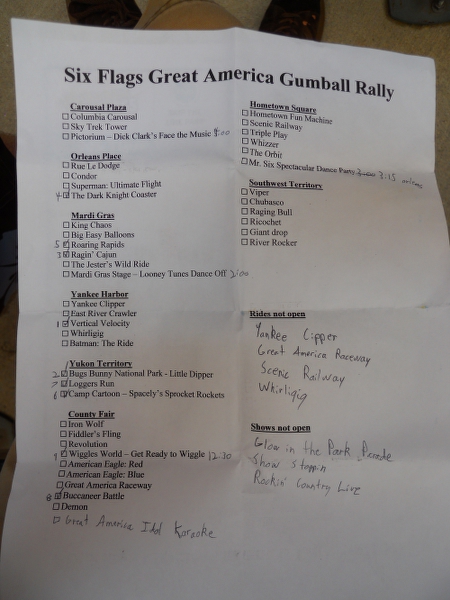 Six Flags Great America Gumball Rally
Carousal Plaza
Columbia Carousal
Sky Trek Tower
Pictorium – Dick Clark's Face the Music
Orleans Place
Rue Le Dodge
Condor
Superman: Ultimate Flight
4 The Dark Knight Coaster
Mardi Gras
King Chaos
Big Easy Balloons
5 Roaring Rapids
3 Ragin' Cajun
The Jester's Wild Ride
Mardi Gras Stage – Looney Tunes Dance Off 2:00
Yankee Harbor
Yankee Clipper
East River Crawler
1 Vertical Velocity
Whirligig
Batman: The Ride
Yukon Territory
2 Bugs Bunny National Park - Little Dipper
7 Loggers Run
6 Camp Cartoon – Spacely's Sprocket Rockets
County Fair
Iron Wolf
Fiddler's Fling
Revolution
9 Wiggles World – Get Ready to Wiggle 12:30
American Eagle: Red
American Eagle: Blue
Great America Raceway
8 Buccaneer Battle
Demon
Great America Idol Karaoke
Hometown Square
Hometown Fun Machine
Scenic Railway
Triple Play
Whizzer
The Orbit
Mr. Six Spectacular Dance Party 3:15
Southwest Territory
Viper
Chubasco
Raging Bull
Ricochet
Giant drop
River Rocker
Rides not open
Yankee Clipper
Great America Raceway
Scenic Railway
Whirligig
Shows not open
Glow in the Park Parade
Show Stoppin
Rockin' Country Live